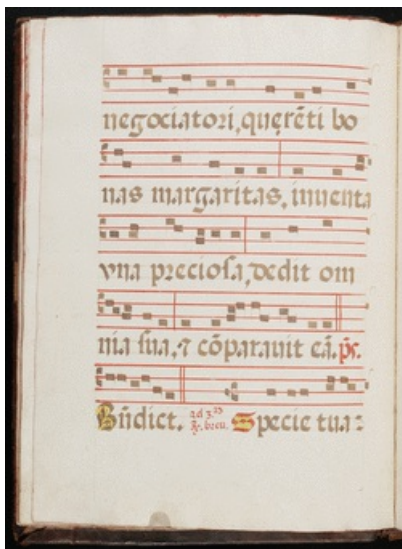 negociatori, querẽti bo
nas margaritas, inuenta
vna preciosa, dedit om
nia sua, ⁊ cõparauit eã. ps.
Bñdict. ad 3. ã ℟. breu. Specie tua: